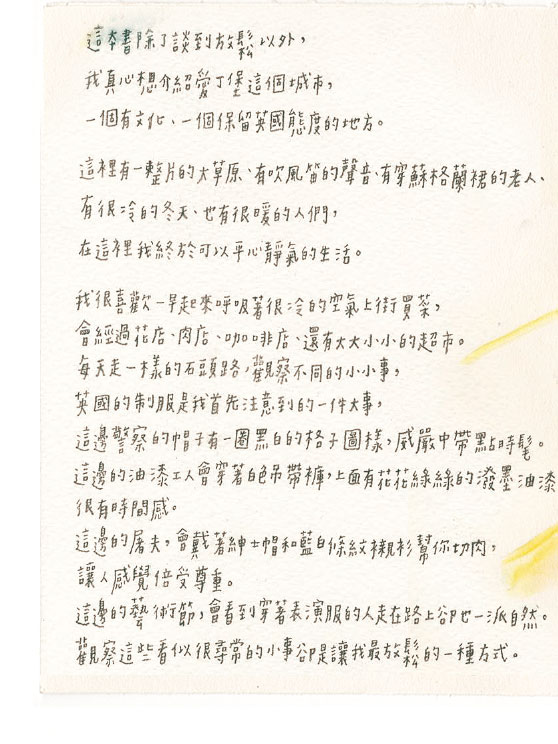 這本書除了談到放鬆以外，
我真心想介紹愛丁堡這個城市，
一個有文化、一個保留英國態度的地方。
這裡有一整片的大草原、有吹風笛的聲音、有穿蘇格蘭裙的老人、
有很冷的冬天、也有很暖的人們，
在這裡我終於可以平心靜氣的生活。
我很喜歡一早起來呼吸著很冷的空氣上街買菜，
會經過花店、肉店、咖啡店、還有大大小小的超市。
每天走一樣的石頭路，觀察不同的小小事，
英國的制服是我首先注意到的一件大事，
這邊警察的帽子有一圈黑白的格子圖樣，威嚴中帶點時髦。
這邊的油漆工人會穿著白色吊帶褲，上面有花花綠綠的潑墨油漆
很有時間感。
這邊的屠夫，會戴著紳士帽和藍白條紋襯衫幫你切肉，
讓人感覺倍受尊重。
這邊的藝術節，會看到穿著表演服的人走在路上卻也一派自然。
觀察這些看似很尋常的小事卻是讓我最放鬆的一種方式。